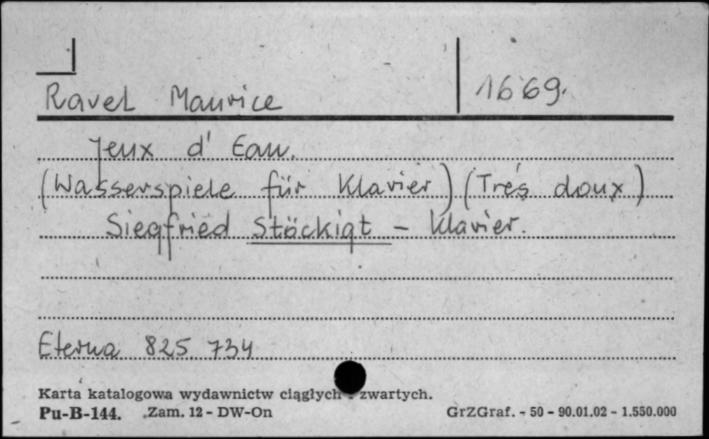 Ravel Maurice 1669.
Jeux d' Eau.
(Wasserspiele für Klavier) (Trés doux)
Siegfried Stöckigt - Klavier.
Eterna 825 734
Karta katalogowa wydawnictw ciągłych - zwartych.
Pu-B-144. Zam. 12 - DW-On GrZGraf. - 50 - 90.01.02 - 1.550.000